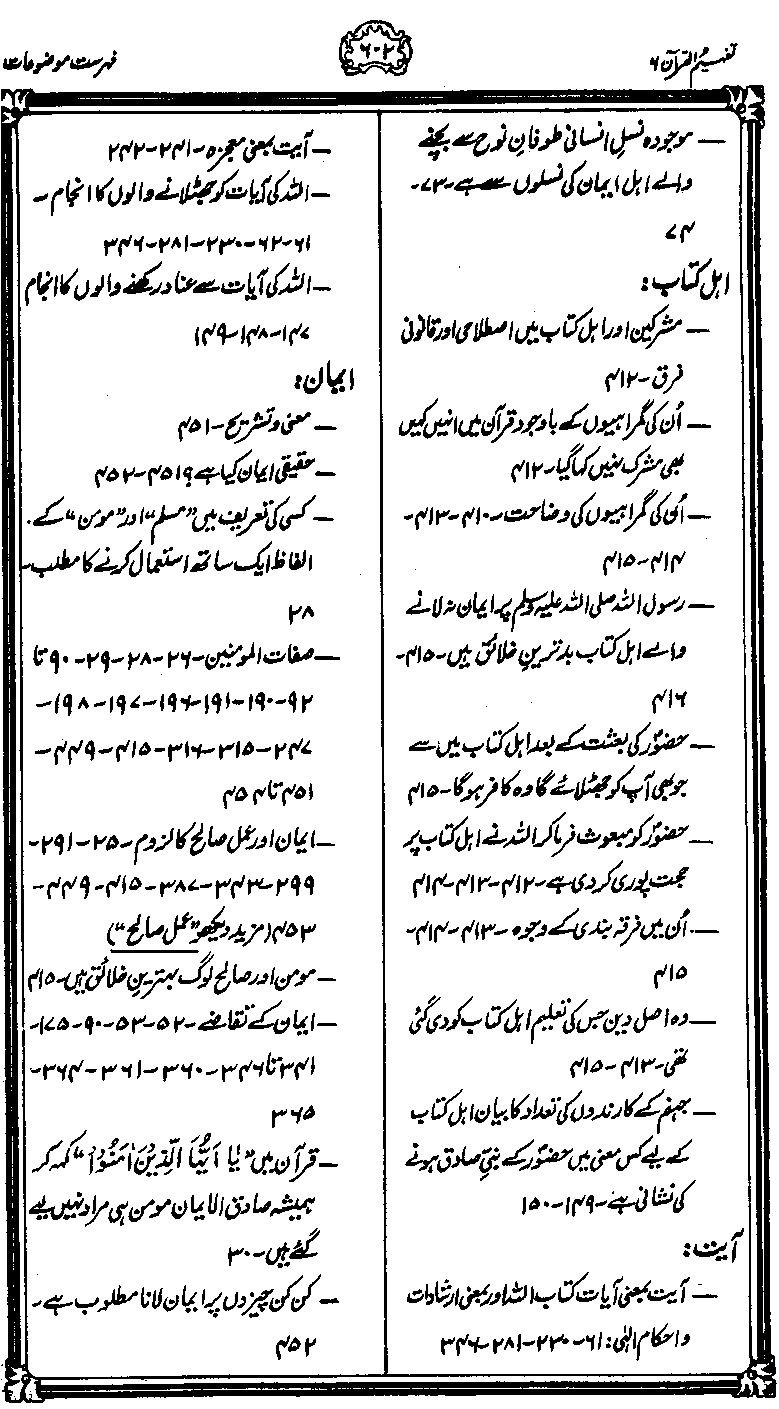 تفہیم القرآن ۶
۶۰۲
فہرست موضوعات
— موجودہ نسلِ انسانی طوفانِ نوح سے بچنے
والے اہل ایمان کی نسلوں سے ہے۔ ۷۳۔
۷۴
اہل کتاب:
— مشرکین اور اہل کتاب میں اصطلاحی اور قانونی
فرق۔ ۴۱۲
— اُن کی گمراہیوں کے باوجود قرآن میں انہیں کہیں
بھی مشرک نہیں کہا گیا۔ ۴۱۲
— اُن کی گمراہیوں کی وضاحت۔ ۴۱۰۔ ۴۱۳۔
۴۱۴۔ ۴۱۵
— رسول اللہ صلی اللہ علیہ وسلم پر ایمان نہ لانے
والے اہل کتاب بدترین خلائق ہیں۔ ۴۱۵۔
۴۱۶
— حضورؐ کی بعثت کے بعد اہل کتاب میں سے
جو بھی آپ کو جھٹلائے گا وہ کافر ہوگا۔ ۴۱۵
— حضورؐ کو مبعوث فرما کر اللہ نے اہل کتاب پر
حجت پوری کر دی ہے۔ ۴۱۲۔ ۴۱۳۔ ۴۱۴
— اُن میں فرقہ بندی کے وجوہ۔ ۴۱۳۔ ۴۱۴۔
۴۱۵
— وہ اصل دین جس کی تعلیم اہل کتاب کو دی گئی
تھی۔ ۴۱۳۔ ۴۱۵
— جہنم کے کارندوں کی تعداد کا بیان اہل کتاب
کے لیے کس معنی میں حضورؐ کے نبیِ صادق ہونے
کی نشانی ہے۔ ۱۴۹۔ ۱۵۰
آیت:
— آیت بمعنی آیات کتاب اللہ اور بمعنی ارشادات
و احکام الٰہی: ۶۱۔ ۲۳۰۔ ۲۸۱۔ ۳۴۶
— آیت بمعنی معجزہ۔ ۲۴۱۔ ۲۴۲
— اللہ کی آیات کو جھٹلانے والوں کا انجام۔
۶۱۔ ۶۲۔ ۲۳۰۔ ۲۸۱۔ ۳۴۶
— اللہ کی آیات سے عناد رکھنے والوں کا انجام
۱۴۷۔ ۱۴۸۔ ۱۴۹
ایمان:
— معنی و تشریح۔ ۴۵۱
— حقیقی ایمان کیا ہے؟ ۴۵۱۔ ۴۵۲
— کسی کی تعریف میں ”مسلم“ اور ”مومن“ کے
الفاظ ایک ساتھ استعمال کرنے کا مطلب۔
۲۸
— صفات المومنین۔ ۲۶۔ ۲۸۔ ۲۹۔ ۹۰ تا
۹۲۔ ۱۹۰۔ ۱۹۱۔ ۱۹۶۔ ۱۹۷۔ ۱۹۸۔
۲۴۷۔ ۳۱۵۔ ۳۱۶۔ ۴۱۵۔ ۴۴۹۔
۴۵۱ تا ۴۵۴
— ایمان اور عمل صالح کا لزوم۔ ۲۵۔ ۲۹۱۔
۲۹۹۔ ۳۴۳۔ ۳۸۷۔ ۴۱۵۔ ۴۴۹۔
۴۵۳ (مزید دیکھو ”عمل صالح“)
— مومن اور صالح لوگ بہترین خلائق ہیں۔ ۴۱۵
— ایمان کے تقاضے۔ ۵۲۔ ۵۳۔ ۹۰۔ ۱۷۵۔
۳۴۱ تا ۳۴۶۔ ۳۶۰۔ ۳۶۱۔ ۳۶۴۔
۳۶۵
— قرآن میں ”یٰا اَیُّہَا الَّذِیْنَ اٰمَنُوْا“ کہہ کر
ہمیشہ صادق الایمان مومن ہی مراد نہیں لیے
گئے ہیں۔ ۳۰
— کن کن چیزوں پر ایمان لانا مطلوب ہے۔
۴۵۲